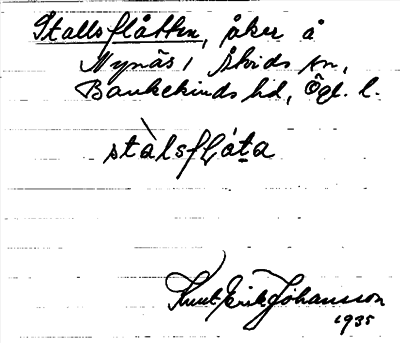 Stallsflåtten, åker å
Nynäs, Åtvids sn,
Bankekinds hd, Ögl. l.
stàlsflóta
Knut Erik Johansson
1935